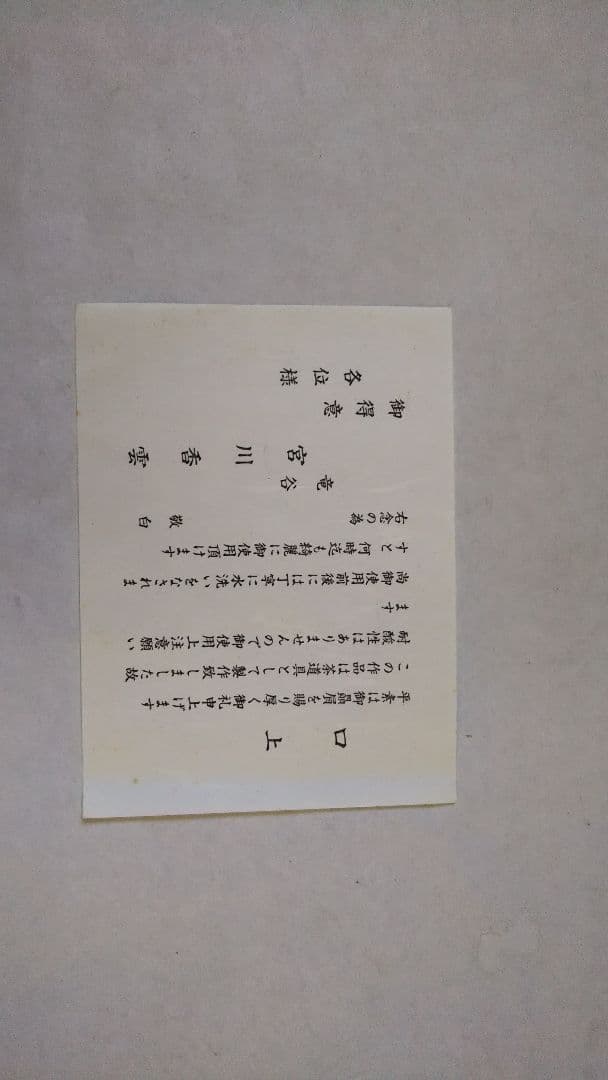 口上
平素は御贔屓を賜り厚く御礼申上げます
この作品は茶道具として製作致しました故
耐酸性はありませんので御使用上注意願い
ます
尚御使用前後には丁寧に水洗いをなされま
すと何時迄も綺麗に御使用頂けます
右念の為 敬白
竜谷
宮川香雲
御得意
各位様